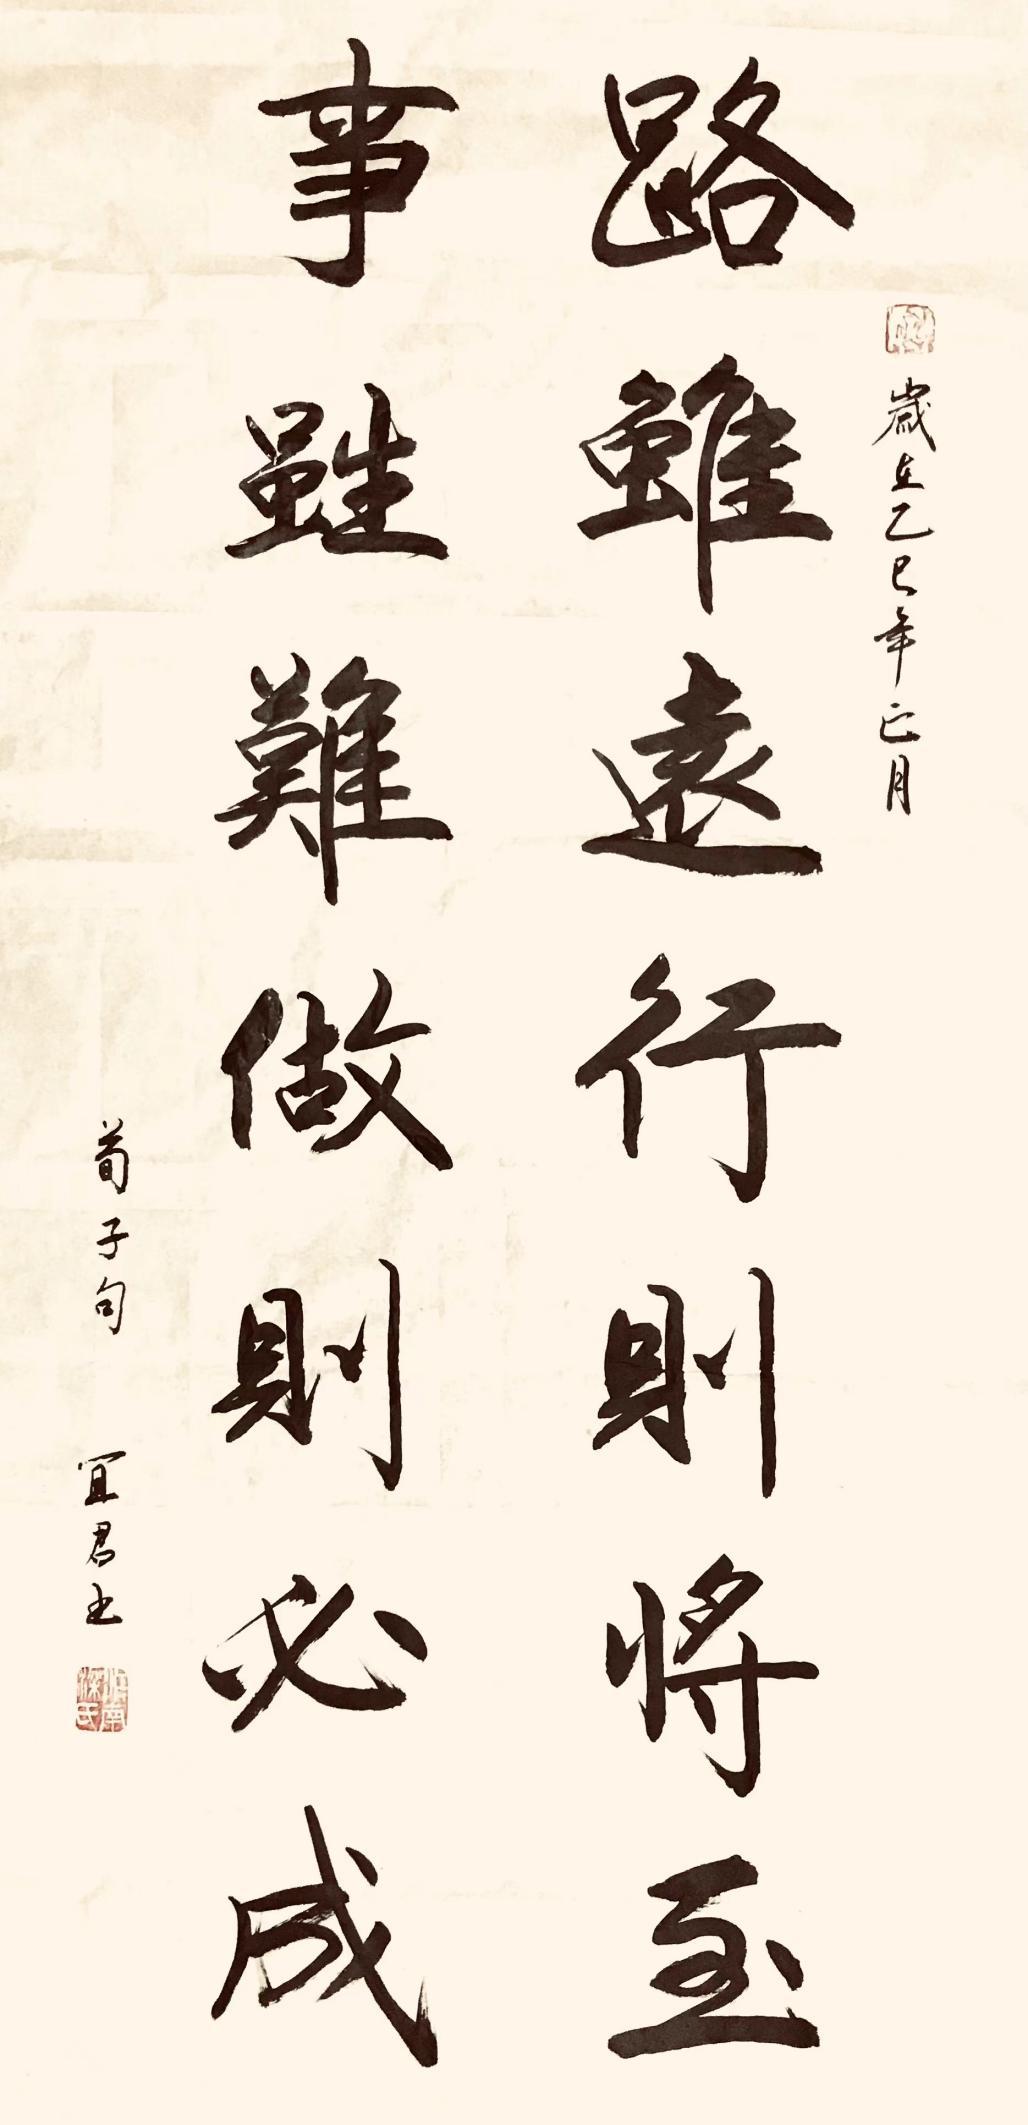 歲在乙巳年正月
路雖遠行則將至
事雖難做則必成
荀子句 宜君书